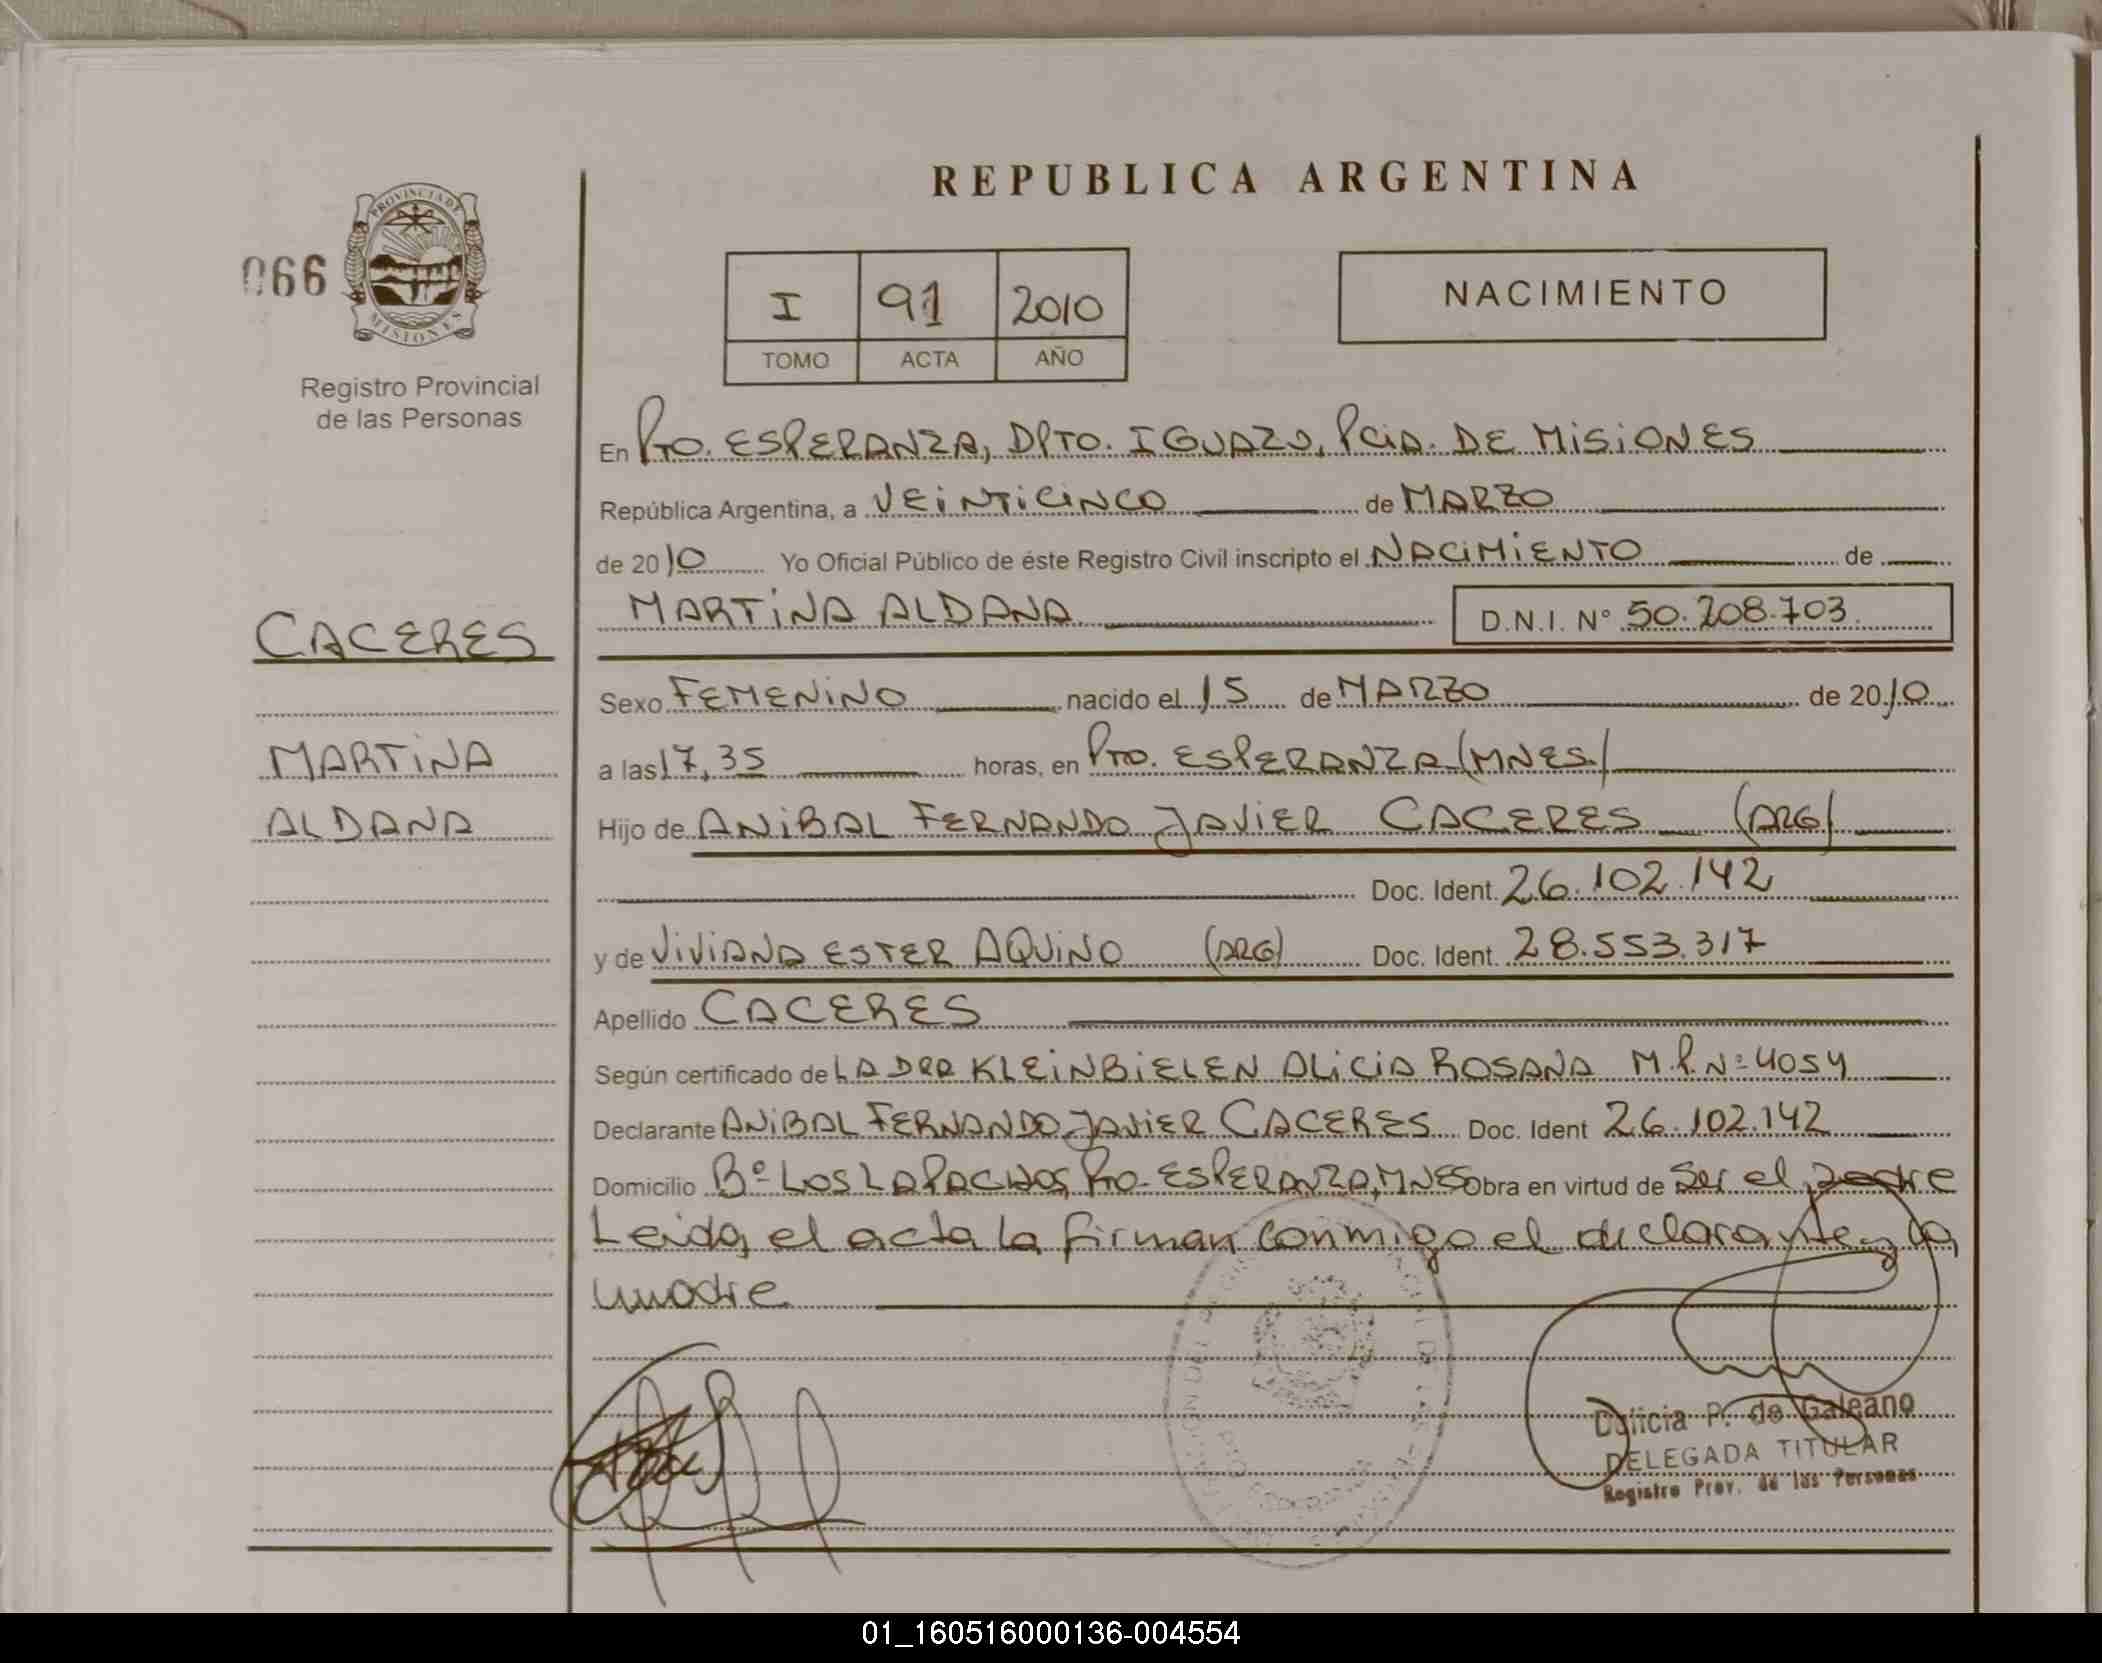 REPUBLICA ARGENTINA
066
PROVINCIA DE
MISIONES
Registro Provincial
de las Personas
I 91 2010
TOMO ACTA AÑO
NACIMIENTO
En Pto. ESPERANZA, DPTO. IGUAZU, PCIA. DE MISIONES
República Argentina, a VEINTICINCO de MARZO
de 2010 Yo Oficial Público de éste Registro Civil inscripto el NACIMIENTO de
MARTINA ALDANA D.N.I. N° 50.208.703
CACERES
MARTINA
ALDANA
Sexo FEMENINO nacido el 15 de MARZO de 2010
a las 17,35 horas, en Pto. ESPERANZA (MNES.)
Hijo de ANIBAL FERNANDO JAVIER CACERES (ARG)
Doc. Ident. 26.102.142
y de VIVIANA ESTER AQUINO (ARG) Doc. Ident. 28.553.317
Apellido CACERES
Según certificado de LA DRA KLEINBIELEN ALICIA ROSANA M.P. Nº 4054
Declarante ANIBAL FERNANDO JAVIER CACERES Doc. Ident 26.102.142
Domicilio Bº LOS LAPACHOS, Pto. ESPERANZA, MNES Obra en virtud de Ser el padre
Leida el acta la firman conmigo el declarante y la
madre
P. de Galeano
DELEGADA TITULAR
Registro Prov. de las Personas
01_160516000136-004554